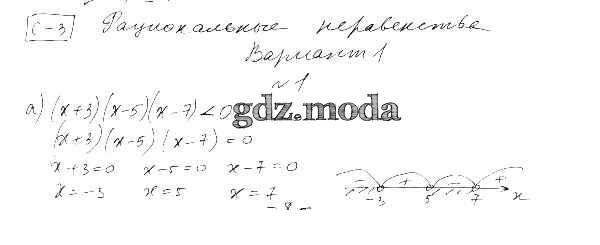 С-3 Рациональные неравенства
Вариант 1
№1
а) (x+3)(x-5)(x-7)<0
gdz.moda
(x+3)(x-5)(x-7)=0
x+3=0 x-5=0 x-7=0
x=-3 x=5 x=7
- + - +
-3 5 7 x